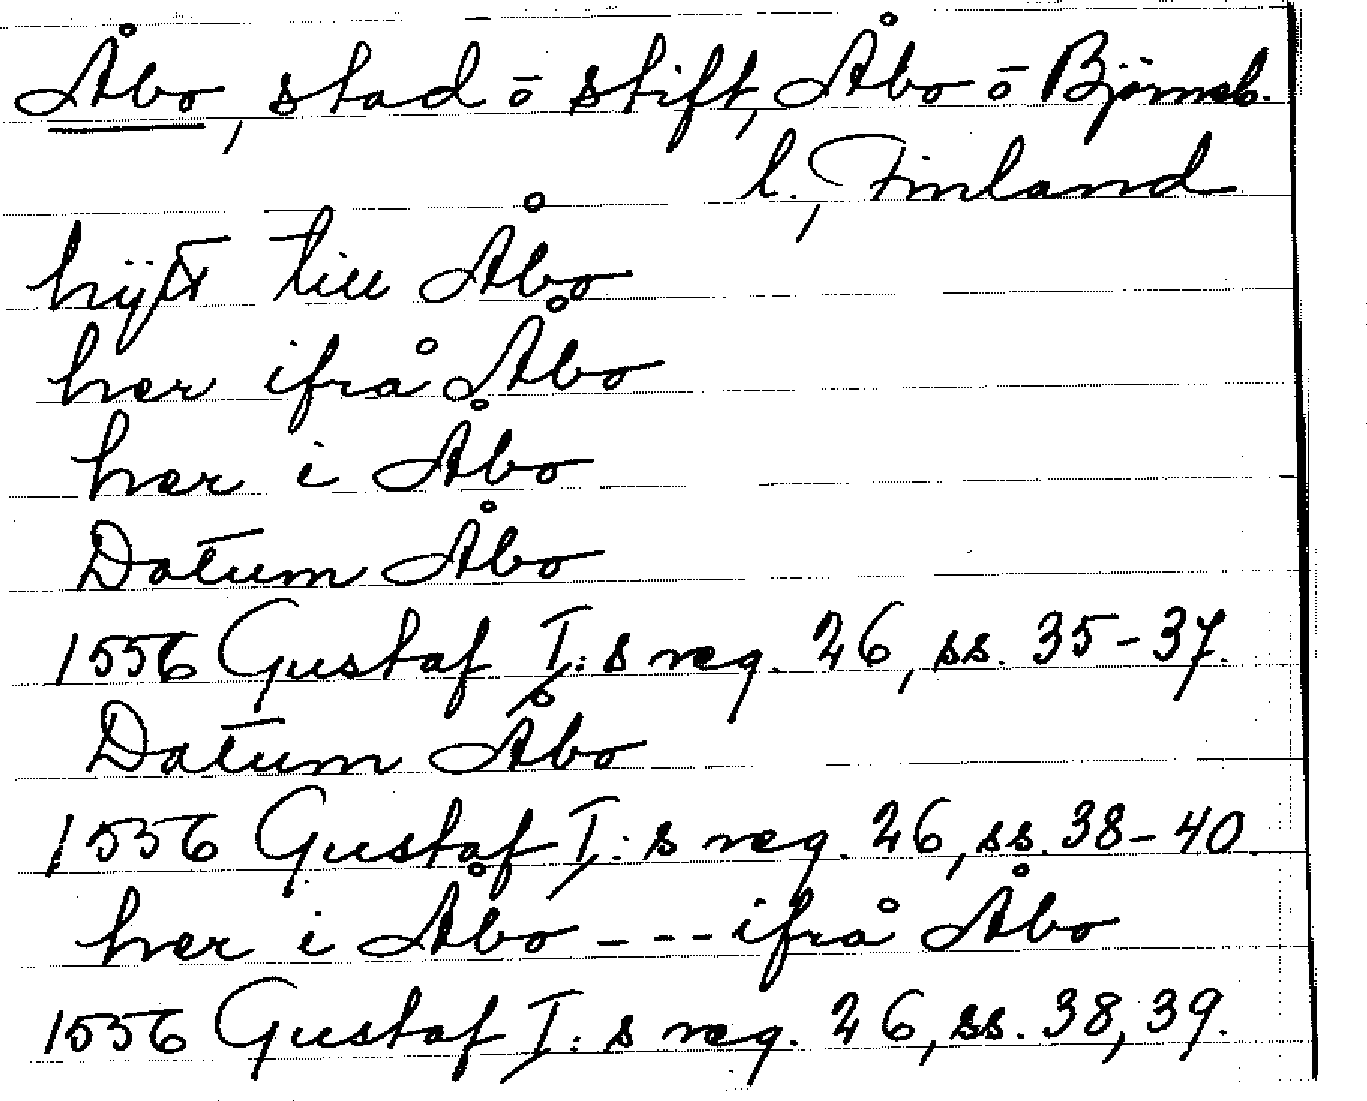 Åbo, stad o stift, Åbo o Björneb.
l., Finland
hijtt till Åbo
her ifrå Åbo
her i Åbo
Datum Åbo
1556 Gustaf I:s reg. 26, ss. 35-37.
Datum Åbo
1556 Gustaf I:s reg. 26, ss. 38-40.
her i Åbo - - - ifrå Åbo
1556 Gustaf I:s reg. 26, ss. 38, 39.